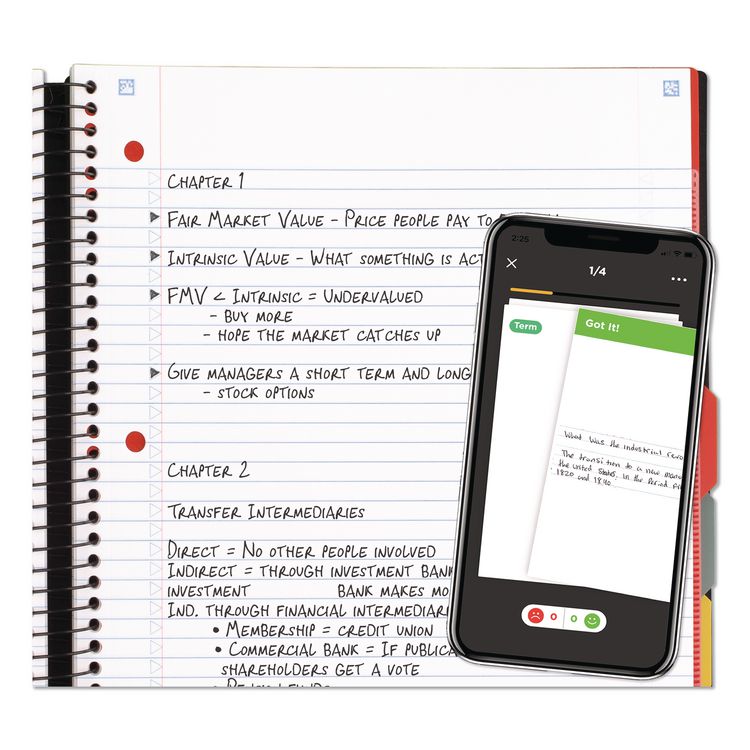 CHAPTER 1
FAIR MARKET VALUE - PRICE PEOPLE PAY TO
INTRINSIC VALUE - WHAT SOMETHING IS ACT
FMV < INTRINSIC = UNDERVALUED
- BUY MORE
- HOPE THE MARKET CATCHES UP
GIVE MANAGERS A SHORT TERM AND LONG
- STOCK OPTIONS
CHAPTER 2
TRANSFER INTERMEDIARIES
DIRECT = NO OTHER PEOPLE INVOLVED
INDIRECT = THROUGH INVESTMENT BANK
INVESTMENT BANK MAKES MO
IND. THROUGH FINANCIAL INTERMEDIARI
• MEMBERSHIP = CREDIT UNION
• COMMERCIAL BANK = IF PUBLICA
SHAREHOLDERS GET A VOTE
2:25
1/4
Term
Got It!
What was the industrial revo
The transition to a new manu
the United States, in the period
1820 and 1840
0 0